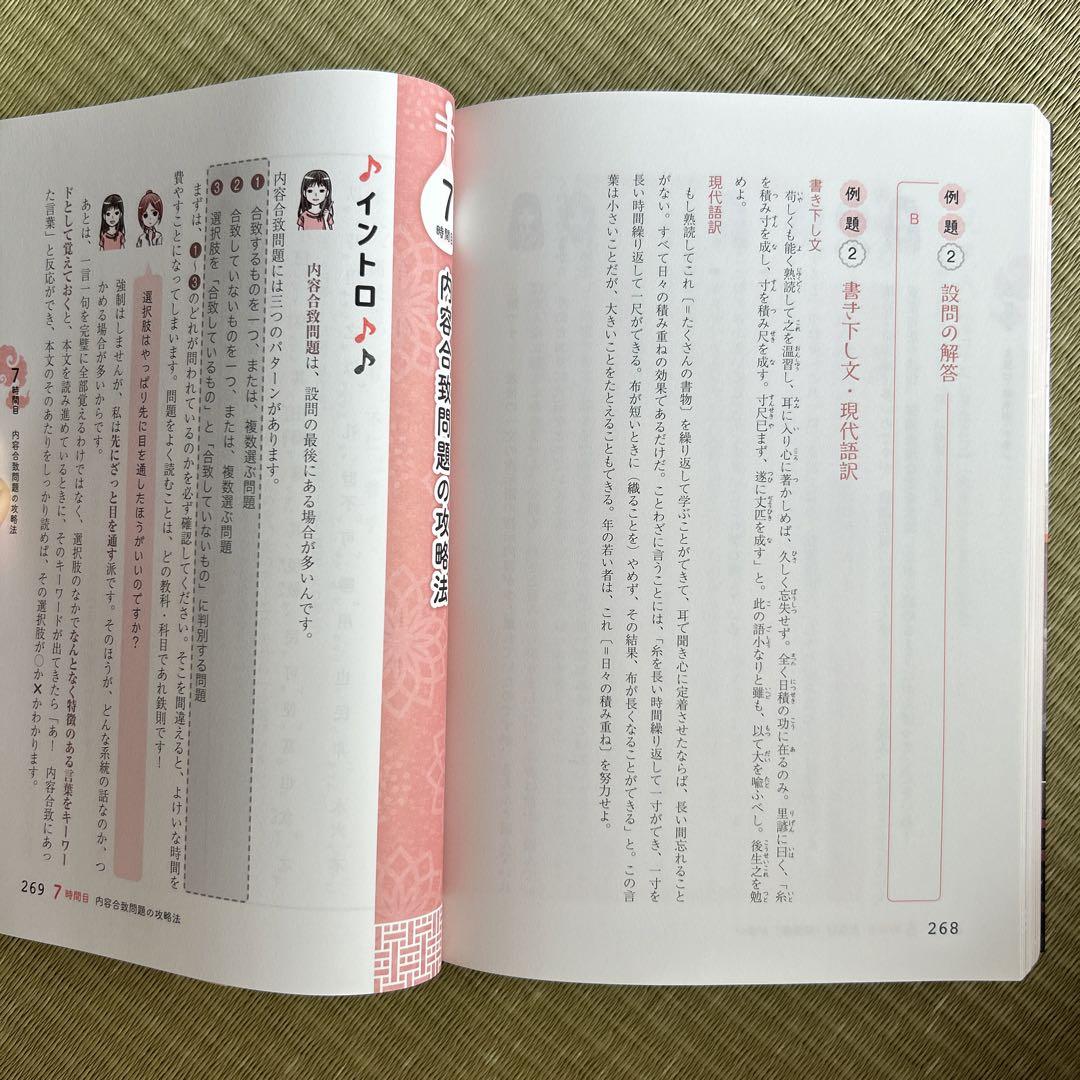 例題2 設問の解答
B
例題2 書き下し文・現代語訳
書き下し文
苟しくも能く熟読して之を温習し、耳に入り心に著かしめば、久しく忘失せず。全く日積の功に在るのみ。里諺に曰く、「糸
を積み寸を成し、寸を積み尺を成す。寸尺已まず、遂に丈匹を成す」と。此の語小なりと雖も、以て大を喩ふべし。後生之を勉
めよ。
現代語訳
もし熟読してこれ〔＝たくさんの書物〕を繰り返して学ぶことができて、耳で聞き心に定着させたならば、長い間忘れること
がない。すべて日々の積み重ねの効果であるだけだ。ことわざに言うことには、「糸を長い時間繰り返して一寸ができ、一寸を
長い時間繰り返して一尺ができる。布が短いときに（織ることを）やめず、その結果、布が長くなることができる」と。この言
葉は小さいことだが、大きいことをたとえることもできる。年の若い者は、これ〔＝日々の積み重ね〕を努力せよ。
268
7時間目 内容合致問題の攻略法
♪イントロ♪♪
内容合致問題は、設問の最後にある場合が多いんです。
内容合致問題には三つのパターンがあります。
❶ 合致するものを一つ、または、複数選ぶ問題
❷ 合致していないものを一つ、または、複数選ぶ問題
❸ 選択肢を「合致しているもの」と「合致していないもの」に判別する問題
まずは、❶〜❸のどれが問われているのかを必ず確認してください。そこを間違えると、よけいな時間を
費やすことになってしまいます。問題をよく読むことは、どの教科・科目であれ鉄則です！
選択肢はやっぱり先に目を通したほうがいいのですか？
強制はしませんが、私は先にざっと目を通す派です。そのほうが、どんな系統の話なのか、つ
かめる場合が多いからです。
あとは、一言一句を完璧に全部覚えるわけではなく、選択肢のなかでなんとなく特徴のある言葉をキーワー
ドとして覚えておくと、本文を読み進めているときに、そのキーワードが出てきたら「あ！　内容合致にあっ
た言葉」と反応ができ、本文のそのあたりをしっかり読めば、その選択肢が○か✕かわかります。
7時間目 内容合致問題の攻略法
269 7時間目 内容合致問題の攻略法